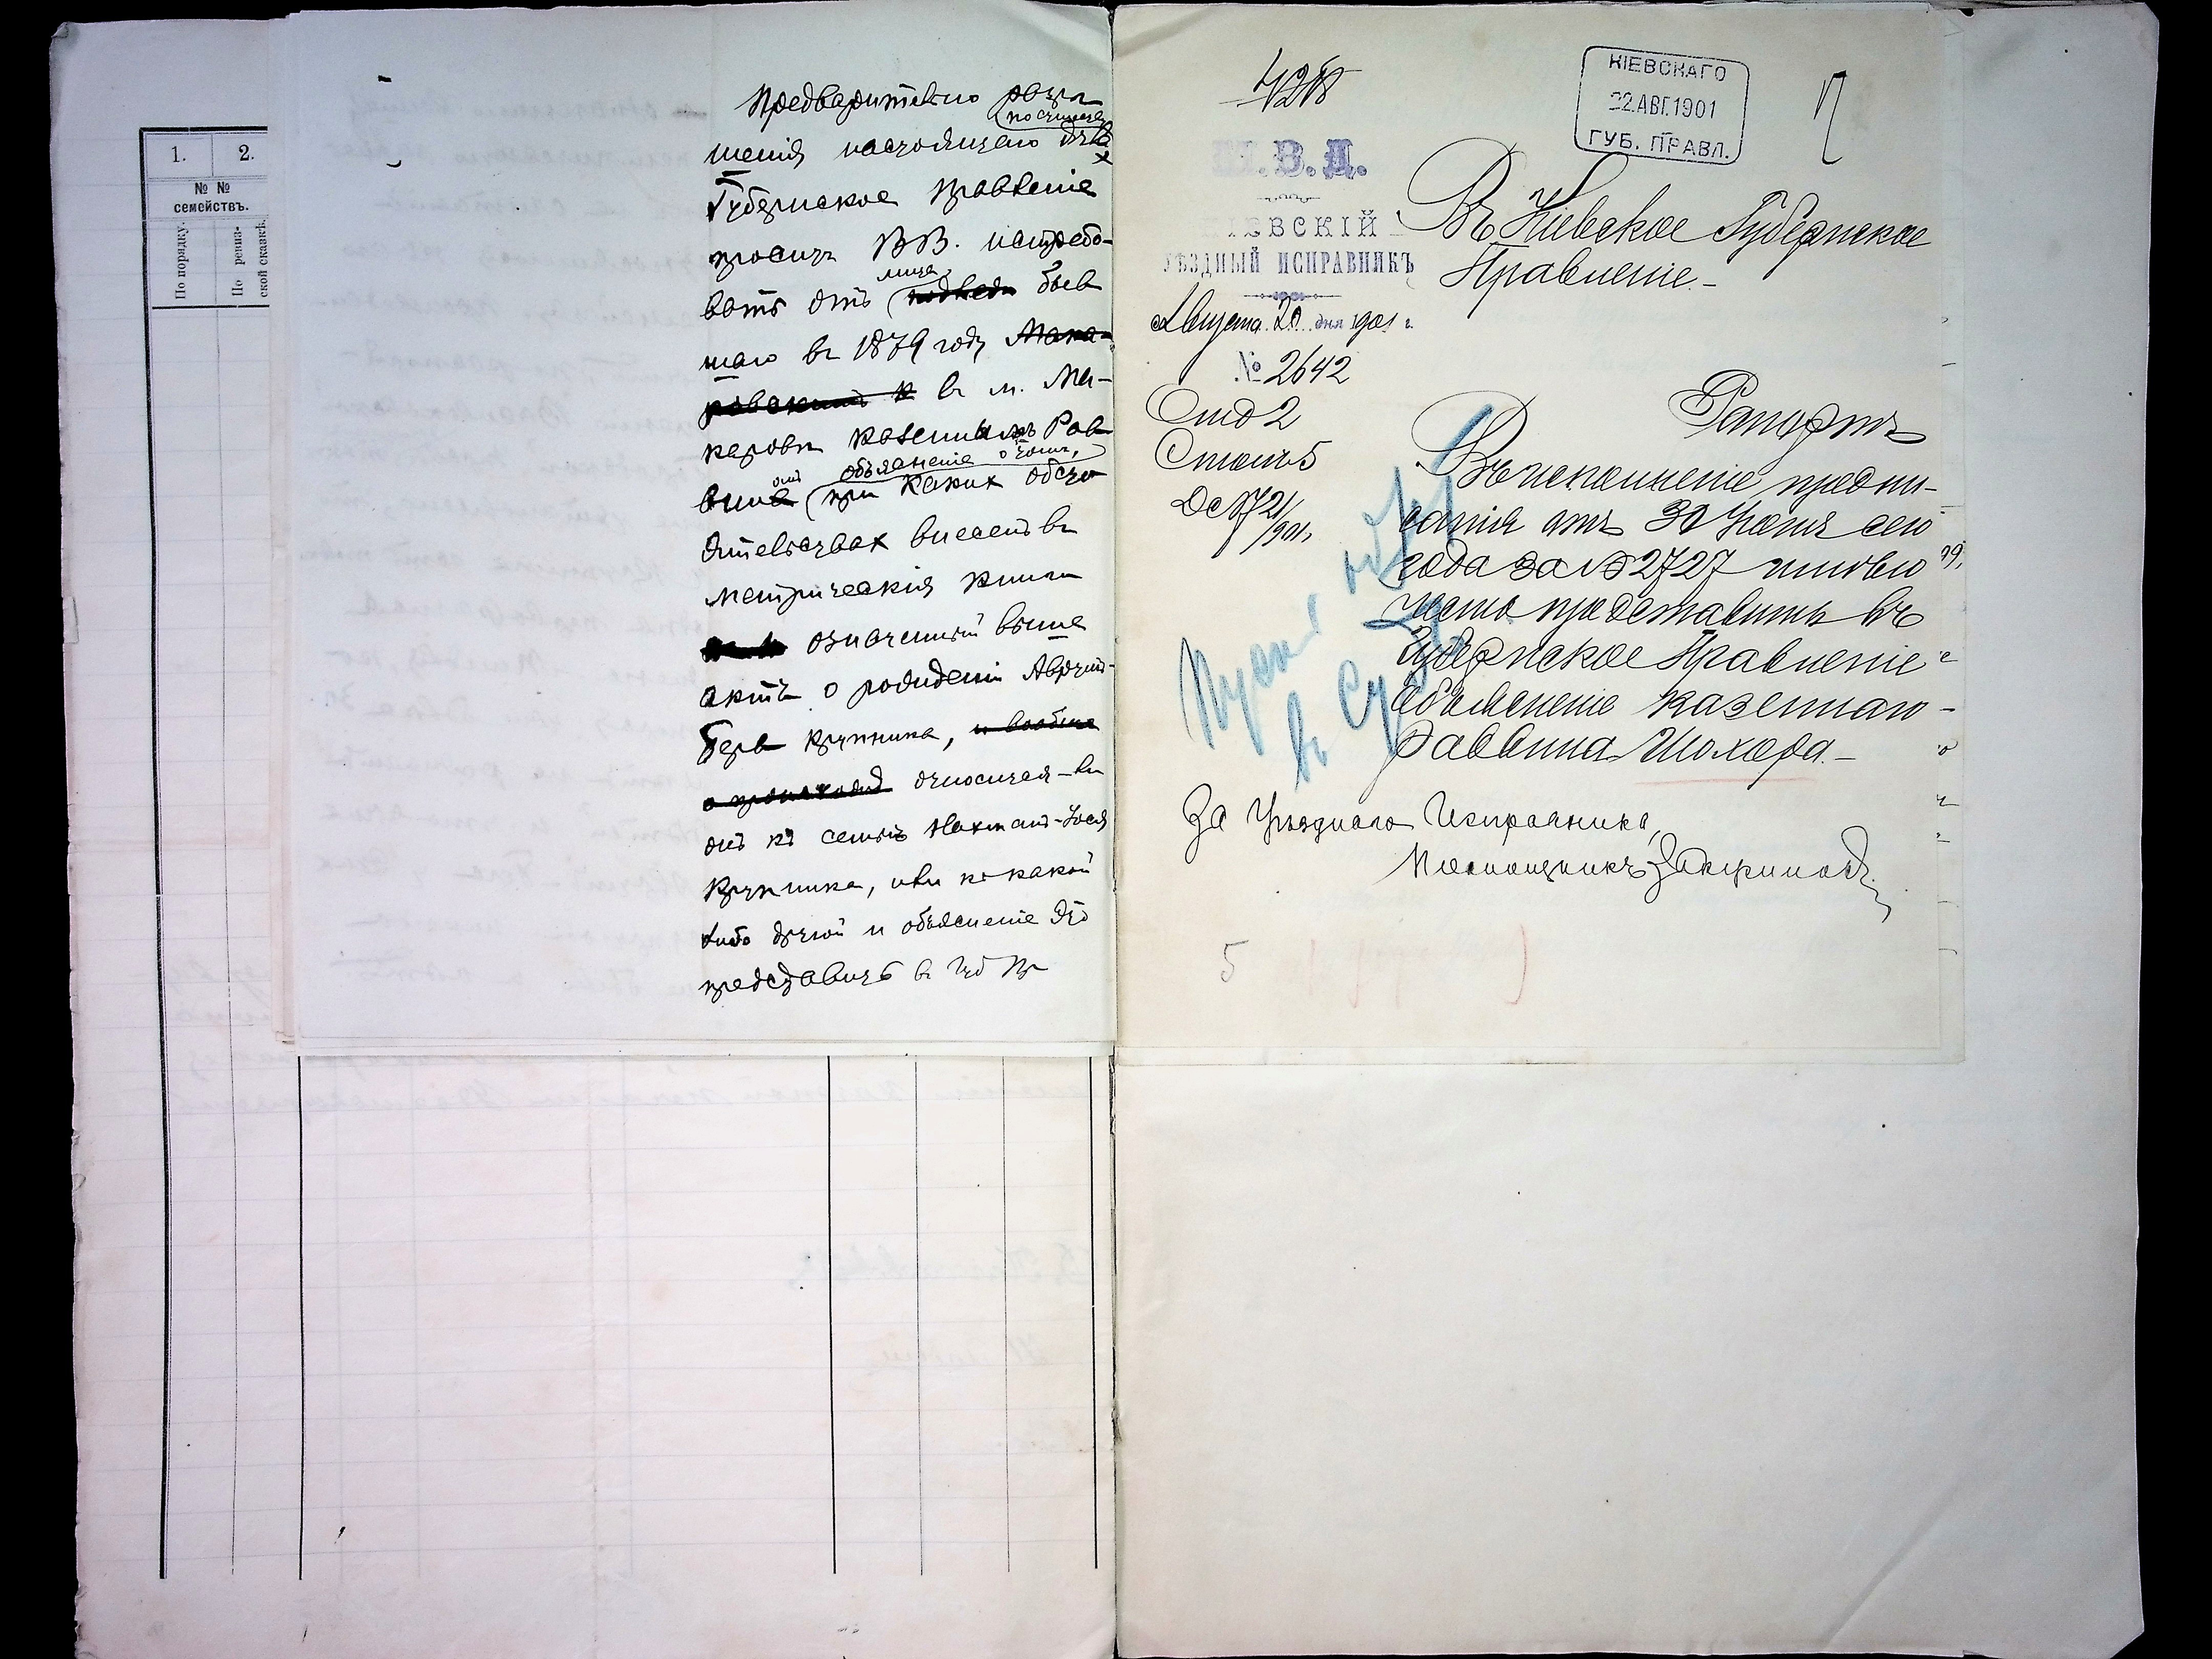 1.
2.
№ №
семействъ.
По порядку.
По ревиз-
ской сказкѣ.
Предварительно разрѣ
по существу
шенія настоящаго дѣла
Губернское Правленіе
проситъ ВВ. истребо-
вать отъ лица быв
шаго въ 1879 году
въ м. Ма-
каровѣ казеннымъ Рав
виномъ объясненіе о томъ,
при какихъ обсто
ятельствахъ внесенъ въ
метрическія книги
означенный выше
актъ о рожденіи Аврумъ-
Бера Крупника, и вообще
относится-ли
онъ къ семьѣ Нахмана-Іося
Крупника, или къ какой
либо другой и объясненіе это
представить въ Губ Пр
КІЕВСКАГО
22.АВГ.1901
ГУБ. ПРАВЛ.
М.В.Д.
КІЕВСКІЙ
УѢЗДНЫЙ ИСПРАВНИКЪ
Августа 20 дня 1901 г.
№ 2642
Отд 2
Столъ 5
Въ Кіевское Губернское
Правленіе.-
Рапортъ
Во исполненіе предпи-
санія отъ 30 Іюня сего
года за № 2727 имѣю
честь представить въ
Губернское Правленіе
объясненіе казеннаго
Раввина Шохора.-
За Уѣзднаго Исправника,
Помощникъ
5